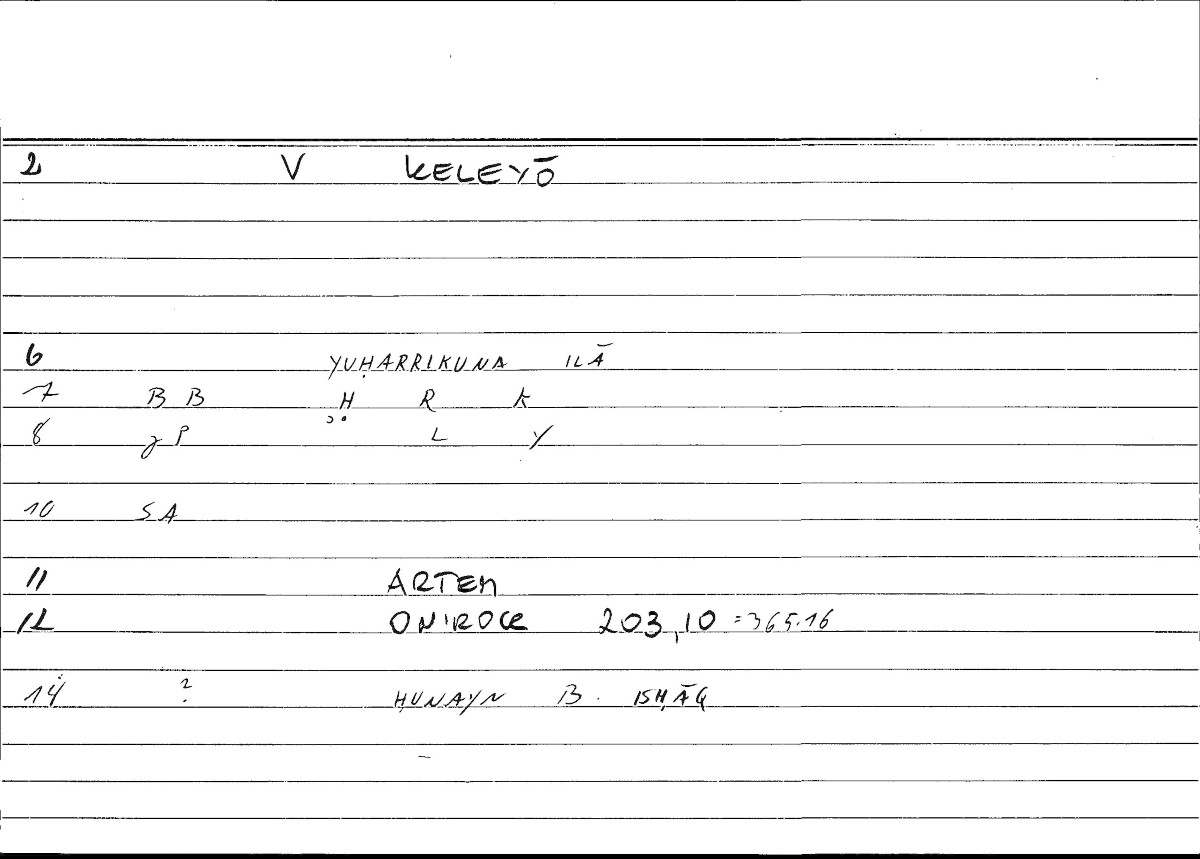 2 V KELEYŌ
6 YUḤARRIKUNA ILĀ
7 B B Ḥ R K
8 g P L Y
10 S A
11 ARTEM
12 ONIROCR 203,10 =365.16
14 ? ḤUNAYN B. ISḤĀQ